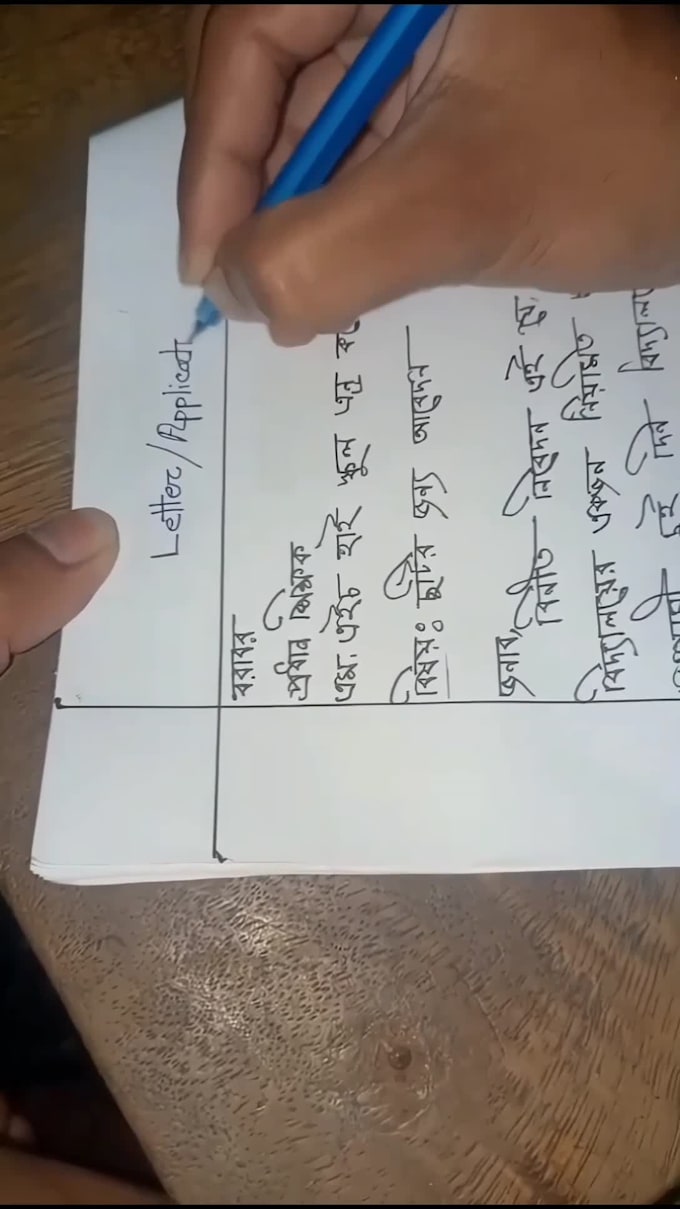 Letter/Applicati
বরাবর
প্রধান শিক্ষক
এম. এইচ হাই স্কুল এন্ড
বিষয়ঃ ছুটির জন্য আবেদন
জনাব,
বিনীত নিবেদন এই যে
বিদ্যালয়ের একজন নিয়মিত
দুই দিন